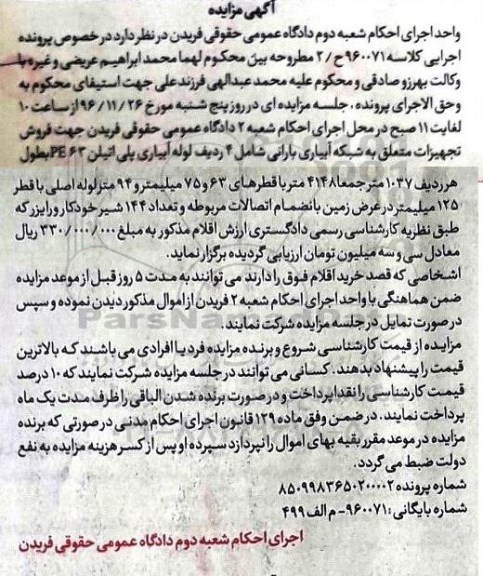 آگهی مزایده
واحد اجرای احکام شعبه دوم دادگاه عمومی حقوقی فریدن در نظر دارد در خصوص پرونده
اجرایی کلاسه ۹۶۰۰۷۱ ح/۲ مطروحه بین محکوم لهما محمد ابراهیم عریضی و غیره با
وکالت بهرزو صادقی و محکوم علیه محمد عبدالهی فرزند علی جهت استیفای محکوم به
وحق الاجرای پرونده، جلسه مزایده ای در روز پنج شنبه مورخ ۹۶/۱۱/۲۶ از ساعت ۱۰
لغایت ۱۱ صبح در محل اجرای احکام شعبه ۲ دادگاه عمومی حقوقی فریدن جهت فروش
تجهیزات متعلق به شبکه آبیاری بارانی شامل ۴ ردیف لوله آبیاری پلی اتیلن PE۶۳ بطول
هر ردیف ۱۰۳۷ متر جمعا ۴۱۴۸ متر با قطرهای ۶۳ و ۷۵ میلیمتر و ۹۴ متر لوله اصلی با قطر
۱۲۵ میلیمتر در عرض زمین با نضمام اتصالات مربوطه و تعداد ۱۴۴ شیر خودکار و رایزر که
طبق نظریه کارشناسی رسمی دادگستری ارزش اقلام مذکور به مبلغ ۳۳۰/۰۰۰/۰۰۰ ریال
معادل سی و سه میلیون تومان ارزیابی گردیده برگزار نماید.
اشخاصی که قصد خرید اقلام فوق را دارند می توانند به مدت ۵ روز قبل از موعد مزایده
ضمن هماهنگی با واحد اجرای احکام شعبه ۲ فریدن از اموال مذکور دیدن نموده و سپس
در صورت تمایل در جلسه مزایده شرکت نمایند.
مزایده از قیمت کارشناسی شروع و برنده مزایده فرد یا افرادی می باشند که بالاترین
قیمت را پیشنهاد بدهند. کسانی می توانند در جلسه مزایده شرکت نمایند که ۱۰ درصد
قیمت کارشناسی را نقدا پرداخت و در صورت برنده شدن الباقی را ظرف مدت یک ماه
پرداخت نمایند. در ضمن وفق ماده ۱۲۹ قانون اجرای احکام مدنی در صورتی که برنده
مزایده در موعد مقرر بقیه بهای اموال را نپردازد سپرده او پس از کسر هزینه مزایده به نفع
دولت ضبط می گردد.
شماره پرونده ۸۵۰۹۹۸۳۶۵۰۲۰۰۰۰۲
شماره بایگانی: ۹۶۰۰۷۱- م الف ۴۹۹
اجرای احکام شعبه دوم دادگاه عمومی حقوقی فریدن